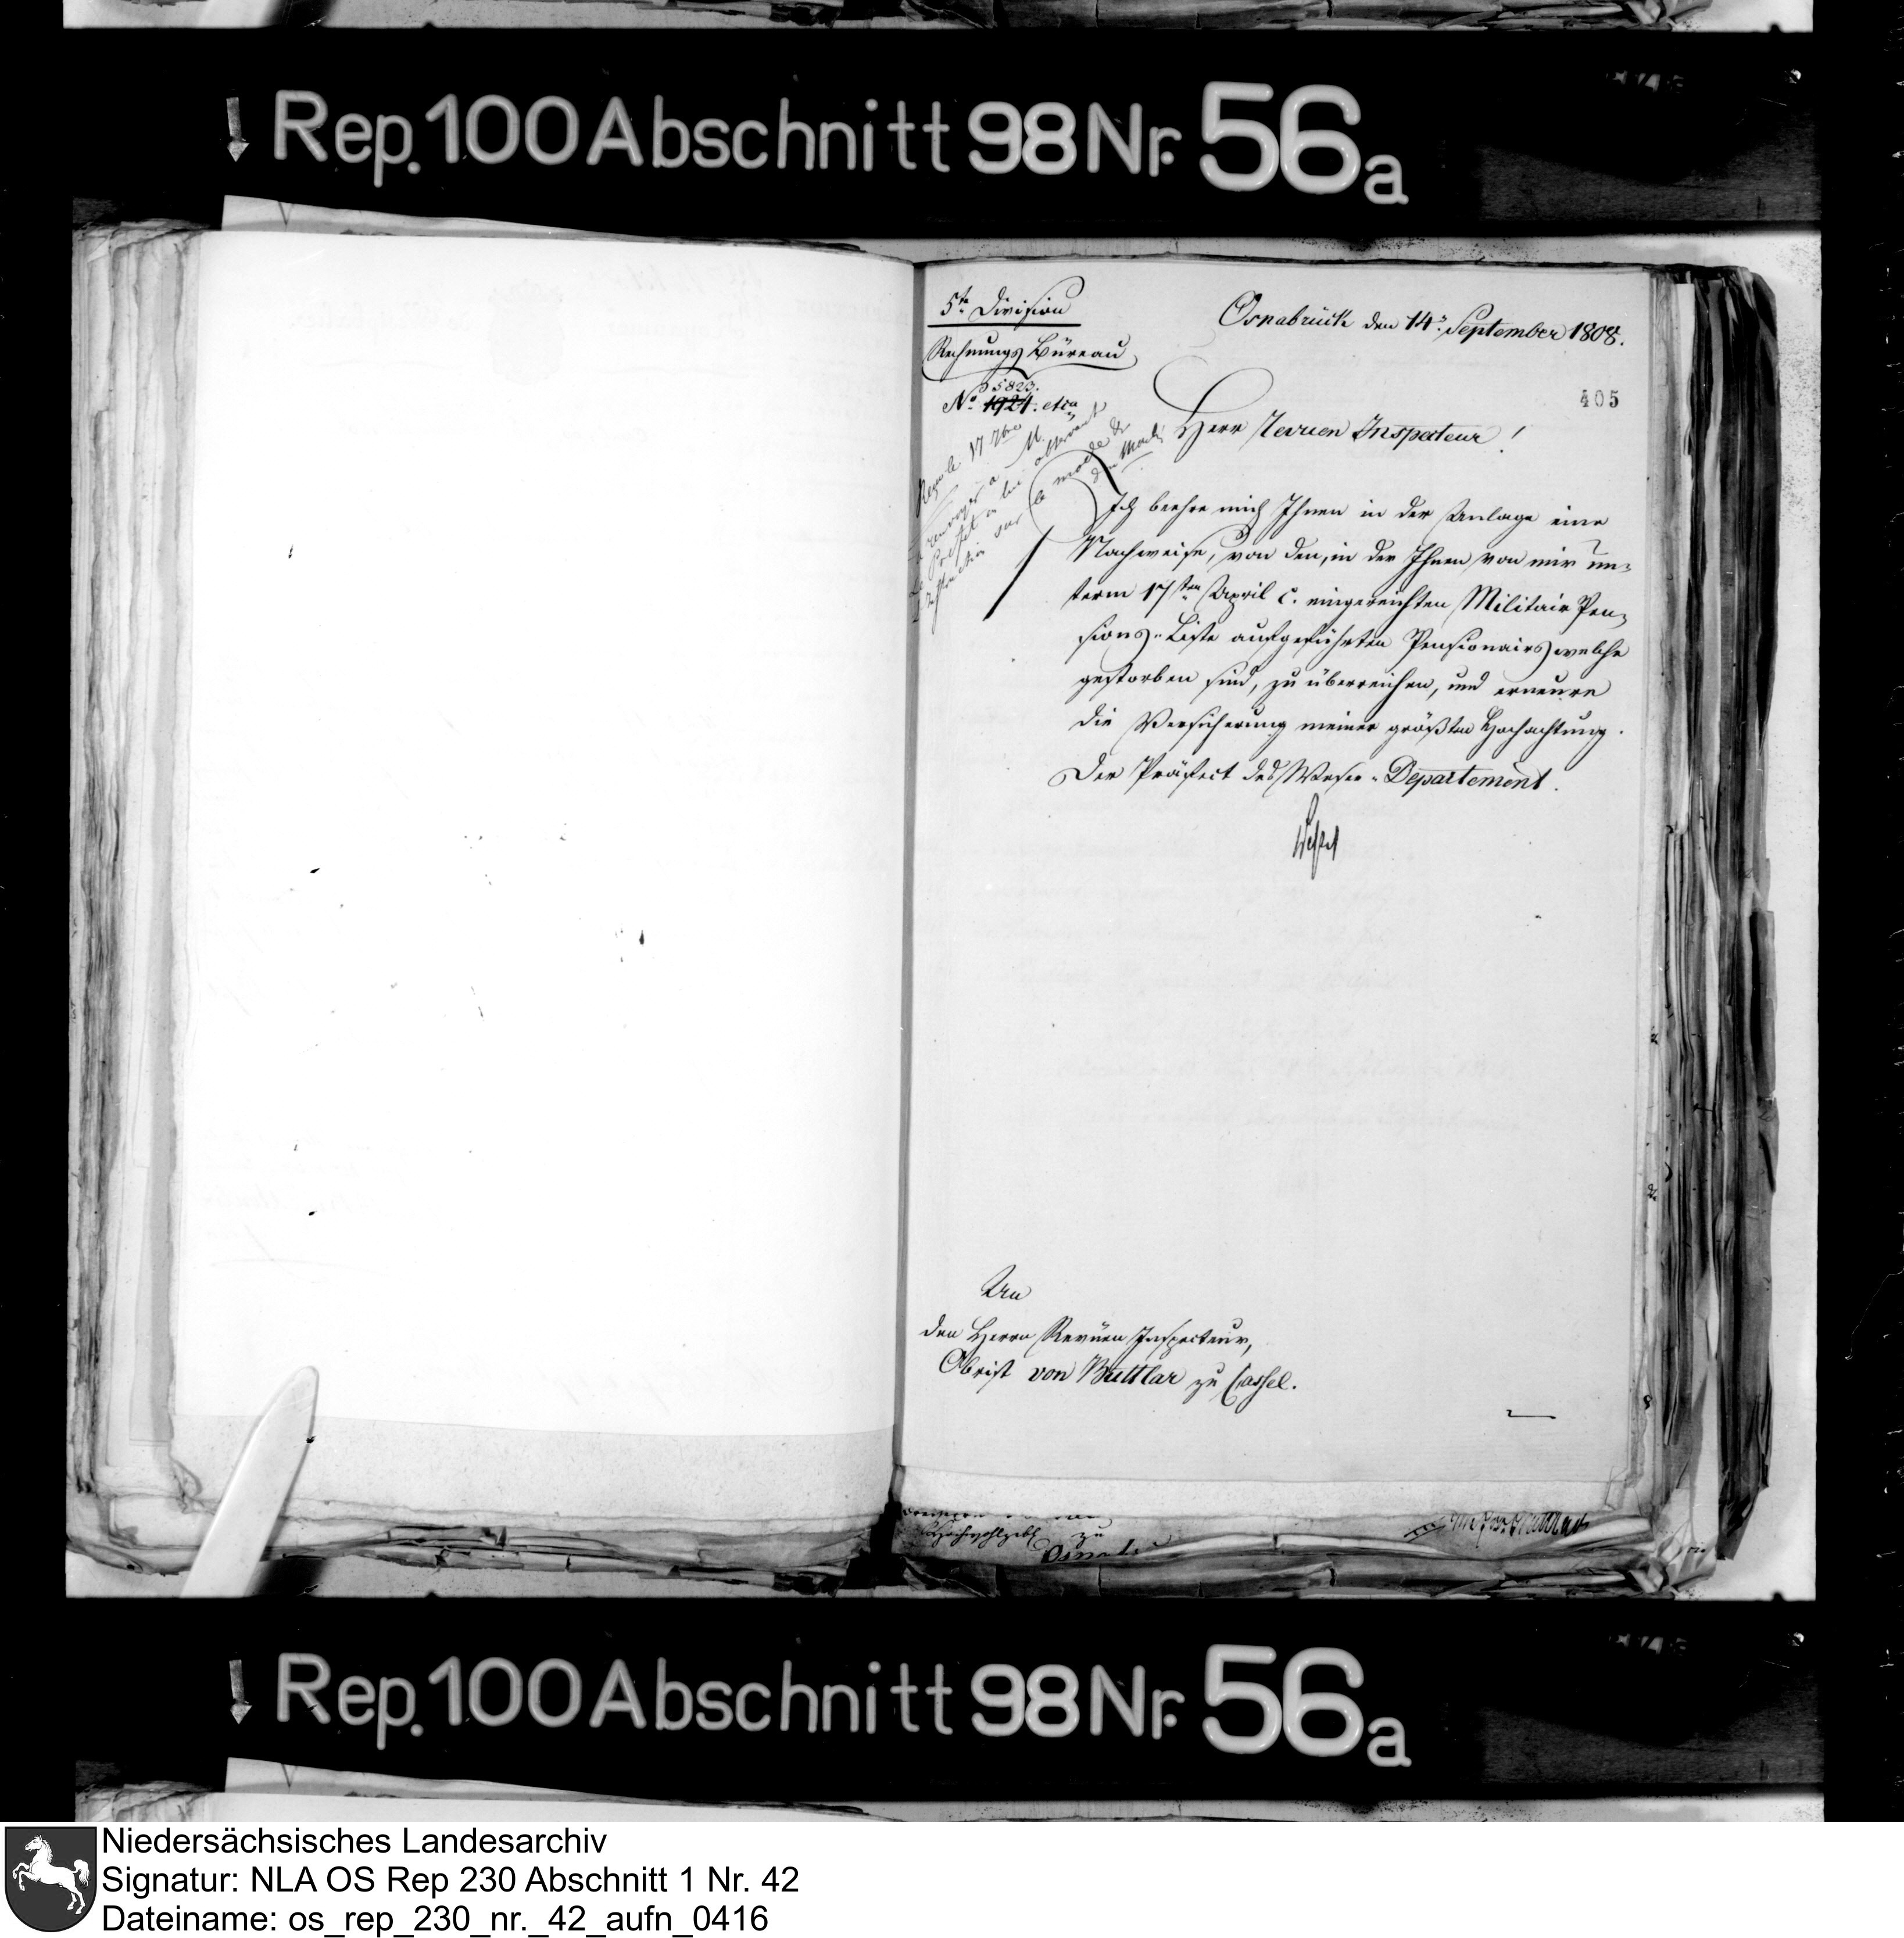 Rep. 100 Abschnitt 98 Nr. 56a
5te Division
Rechnungs Büreau
5823.
No 1924.
Osnabrück den 14. September 1808.
405
Herr Revuen Inspecteur!
Reçu le 17 7bre
à renvoyer à M.
Le Préfet en lui observant
sur le mode de
Ich beehre mich Ihnen in der Anlage eine
Nachweise, von den, in der Ihnen von mir un-
term 17ten April c. eingereichten Militair Pen-
sions-Liste aufgeführten Pensionairs welche
gestorben sind, zu überreichen, und erneure
die Versicherung meiner größten Hochachtung.
Der Präfect des Weser-Departement.
An
den Herrn Revüen Inspecteur,
Obrist von Buttlar zu Cassel.
Hochwohlgeb. zu
Rep. 100 Abschnitt 98 Nr. 56a
Niedersächsisches Landesarchiv
Signatur: NLA OS Rep 230 Abschnitt 1 Nr. 42
Dateiname: os_rep_230_nr._42_aufn_0416